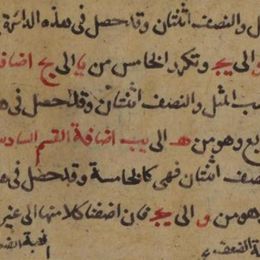 ل والنصف اثنتان وقد حصل فى هذه الدائرة
و الى يج وتكرر الخامس من يا الى يح اضافة
المثل والنصف اثنتان وقد حصل فى
ربع وهو من هـ الى يب اضافة القسم السادس
نصف اثنتان فهى كالخامسة وقد حصل فى
وهو من و الى يج فان اضفنا كلا منها الى غير
الضعف